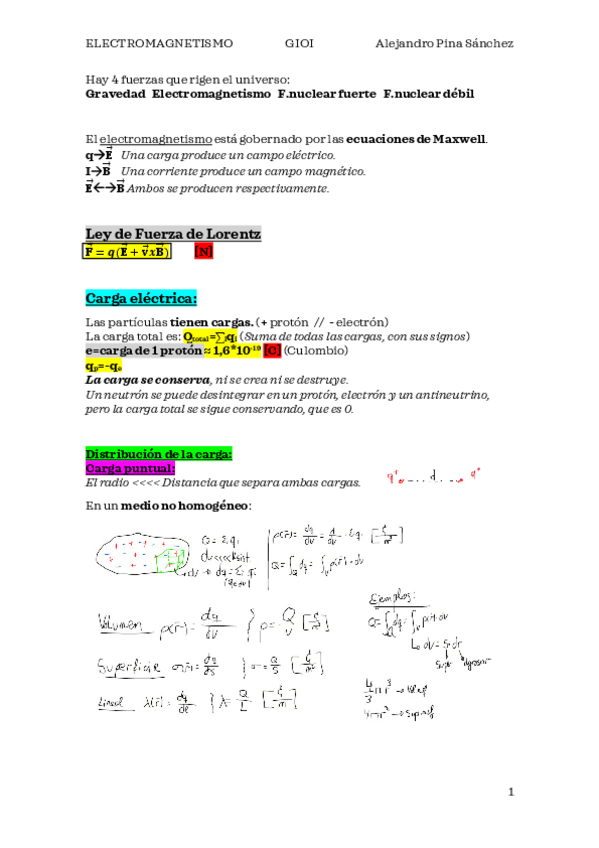 ELECTROMAGNETISMO GIOI Alejandro Pina Sánchez
Hay 4 fuerzas que rigen el universo:
Gravedad Electromagnetismo F.nuclear fuerte F.nuclear débil
El electromagnetismo está gobernado por las ecuaciones de Maxwell.
q→E⃗ Una carga produce un campo eléctrico.
I→B⃗ Una corriente produce un campo magnético.
E⃗←→B⃗ Ambos se producen respectivamente.
Ley de Fuerza de Lorentz
F⃗ = q(E⃗ + v⃗xB⃗) [N]
Carga eléctrica:
Las partículas tienen cargas. (+ protón // - electrón)
La carga total es: Qtotal=∑qi (Suma de todas las cargas, con sus signos)
e=carga de 1 protón ≈ 1,6*10-19 [C] (Culombio)
qp=-qe
La carga se conserva, ni se crea ni se destruye.
Un neutrón se puede desintegrar en un protón, electrón y un antineutrino,
pero la carga total se sigue conservando, que es 0.
Distribución de la carga:
Carga puntual:
El radio <<<< Distancia que separa ambas cargas.
q+ ... d ... q+
En un medio no homogéneo:
Q = Σ qi
ρ(r⃗) = dq/dv = d/dv · Σqi
Q = ∫ dq = ∫v ρ(r⃗)·dv
Ejemplos:
Volumen ρ(r⃗) = dq/dv } ρ = Q/V [C/m³]
Q = ∫ dq = ∫v ρ(r)·dv
Superficie σ(r⃗) = dq/ds } σ = Q/S [C/m²]
Lineal λ(r⃗) = dq/dl } λ = Q/L [C/m]
4/3 π r³ →
4π r² →
1